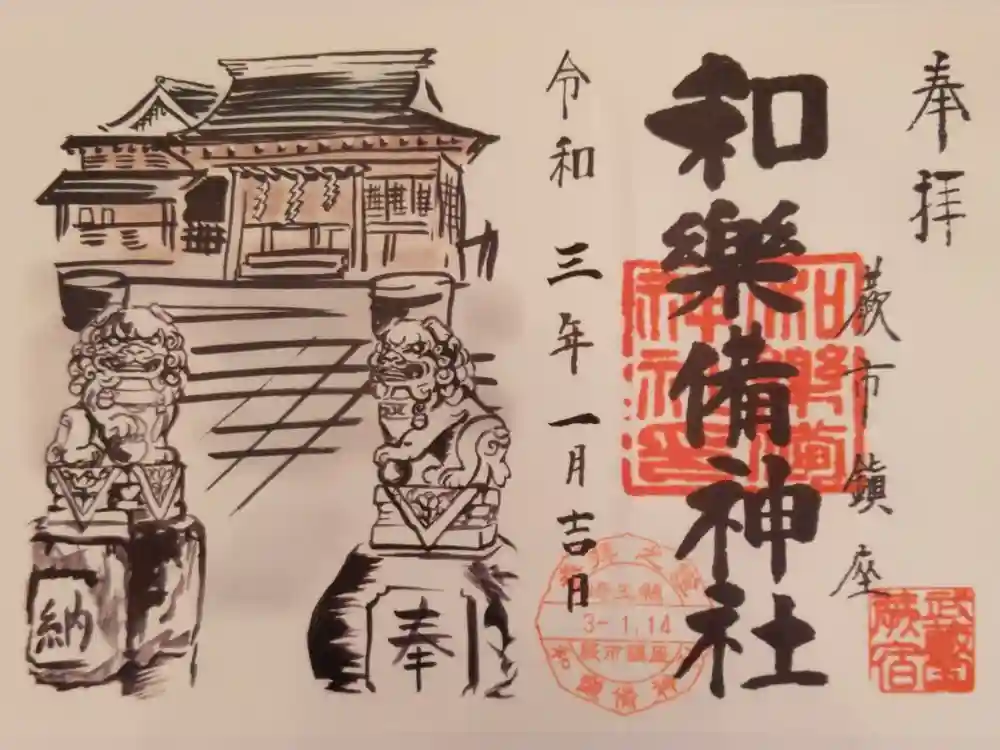 奉拝
蕨市鎮座
和樂備神社
令和三年一月吉日
和樂備
神社
武蔵
蕨宿
3-1.14
奉
納